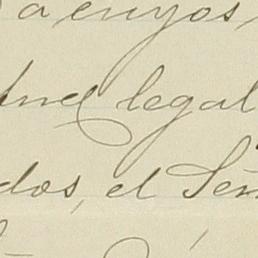 a cuyos
legal
dos, el Señ